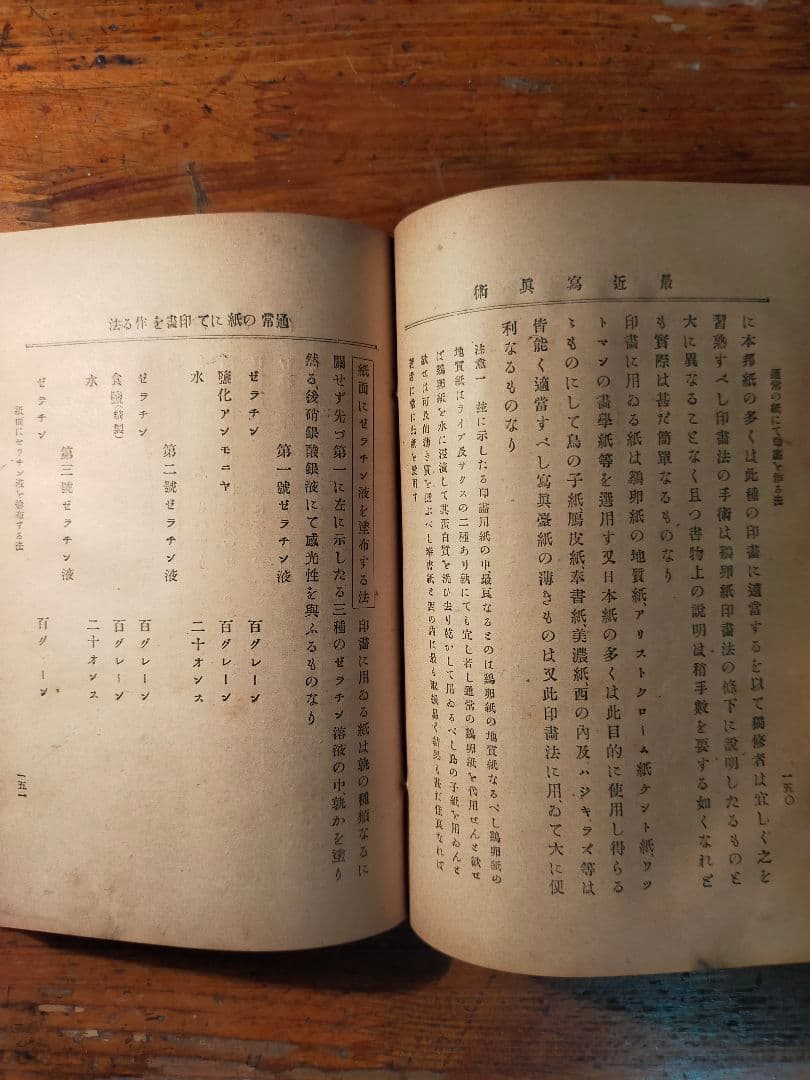 最近寫眞術
通常の紙にて印畵を作る法
一五〇
に本邦紙の多くは此種の印畵に適當するを以て獨修者は宜しく之を
習熟すべし印畵法の手術は鷄卵紙印畵法の條下に説明したるものと
大に異なることなく且つ書物上の説明は稍手數を要する如くなれど
も實際は甚だ簡單なるものなり
印畵に用ゐる紙は鷄卵紙の地質紙、アリストクローム紙ケント紙、ワッ
トマンの畵學紙等を選用す又日本紙の多くは此目的に使用し得らる
ゝものにして鳥の子紙、鴈皮紙、奉書紙、美濃紙、西の內及ハジキラズ等は
皆能く適當すべし寫眞臺紙の薄きものは又此印畵法に用ゐて大に便
利なるものなり
注意一 玆に示したる印畵用紙の中、最良なるものは鷄卵紙の地質紙なるべし鷄卵紙の
地質紙はライブ及サクスの二種あり孰にても宜し若し通常の鷄卵紙を代用せんと欲せ
ば鷄卵紙を水に浸漬して其蛋白質を洗ひ去り乾かして用ゐるべし鳥の子紙を用ゐんと
欲せば可及的薄き質を選ぶべし奉書紙と西の內は最も取扱易く結果も甚だ佳良なれば
著者は常に此紙を使用す
通常の紙にて印畵を作る法
紙面にゼラチン液を塗布する法 印畵に用ゐる紙は孰の種類なるに
關せず先づ第一に左に示したる三種のゼラチン溶液の中、孰かを塗り
然る後硝銀酸銀液にて感光性を與ふるものなり
第一號ゼラチン液
ゼラチン 百グレーン
鹽化アンモニヤ 百グレーン
水 二十オンス
第二號ゼラチン液
ゼラチン 百グレーン
食鹽(精製) 百グレーン
水 二十オンス
第三號ゼラチン液
ゼラチン 百グレーン
紙面にゼラチン液を塗布する法
一五一